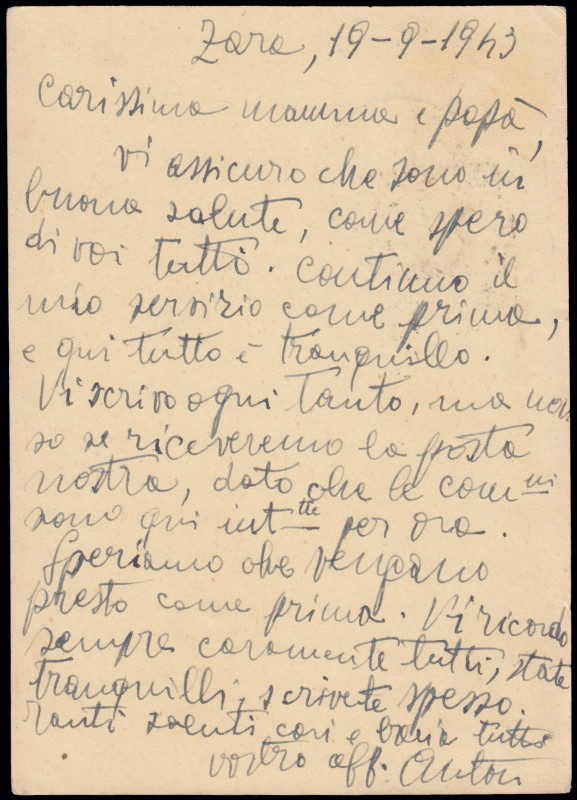 Zara, 19-9-1943
Carissima mamma e papà,
vi assicuro che sono in
buona salute, come spero
di voi tutti. Continuo il
mio servizio come prima,
e qui tutto è tranquillo.
Vi scrivo ogni tanto, ma non
so se riceveremo la posta
nostra, dato che le comni
sono qui inttte per ora.
Speriamo che vengano
presto come prima. Vi ricordo
sempre caramente tutti, state
tranquilli, scrivete spesso.
Tanti saluti cari e baci a tutti
vostro aff. Anton